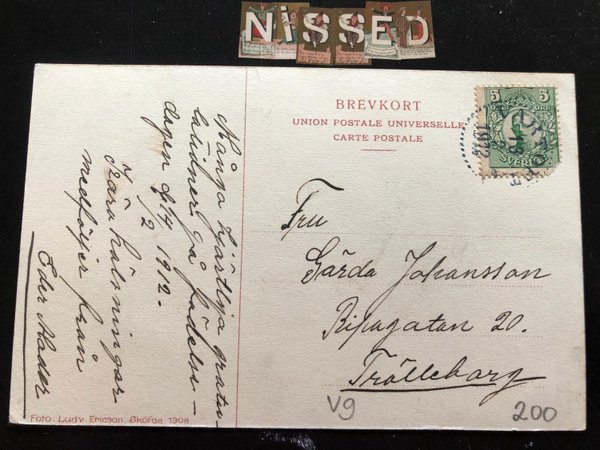 NiSSED
BREVKORT
UNION POSTALE UNIVERSELLE
CARTE POSTALE
5 5
SVERIGE
1912
Många hjärtliga gratu-
lationer på födelse-
dagen d. 14/2 1912.
Kära hälsningar
medföljer från
Eder Moder
Fru
Gärda Johansson
Ripagatan 20.
Trälleborg
Foto: Ludv. Ericson, Sköfde 1908
V9
200